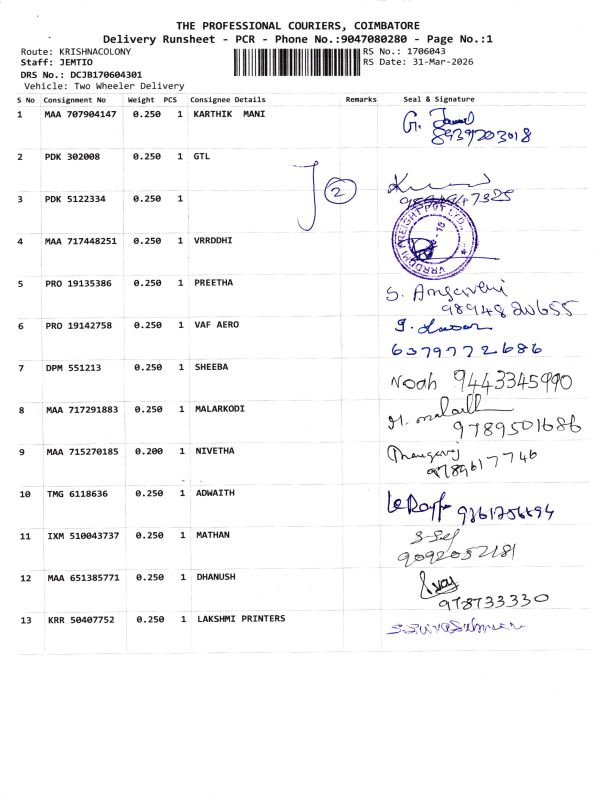 THE PROFESSIONAL COURIERS, COIMBATORE
Delivery Runsheet - PCR - Phone No.:9047080280 - Page No.:1
Route: KRISHNACOLONY RS No.: 1706043
Staff: JEMTIO RS Date: 31-Mar-2026
DRS No.: DCJB170604301
Vehicle: Two Wheeler Delivery
S No Consignment No Weight PCS Consignee Details Remarks Seal & Signature
1 MAA 707904147 0.250 1 KARTHIK MANI G.
8939203018
2 PDK 302008 0.250 1 GTL
2
3 PDK 5122334 0.250 1
4 MAA 717448251 0.250 1 VRRDDHI
VRRDDHI FREIGHT PVT LTD.
5 PRO 19135386 0.250 1 PREETHA S.
9894820655
6 PRO 19142758 0.250 1 VAF AERO
6379772686
7 DPM 551213 0.250 1 SHEEBA Noah 9443345990
8 MAA 717291883 0.250 1 MALARKODI
9789501686
9 MAA 715270185 0.200 1 NIVETHA
9789617746
10 TMG 6118636 0.250 1 ADWAITH
11 IXM 510043737 0.250 1 MATHAN
9092052181
12 MAA 651385771 0.250 1 DHANUSH
978733330
13 KRR 50407752 0.250 1 LAKSHMI PRINTERS